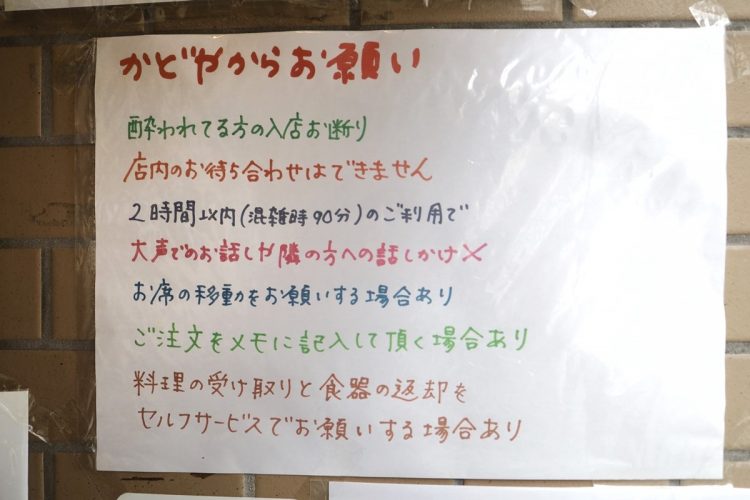 かどやからお願い
酔われてる方の入店お断り
店内のお待ち合わせはできません
2時間以内(混雑時90分)のご利用で
大声でのお話しや隣の方への話しかけ×
お席の移動をお願いする場合あり
ご注文をメモに記入して頂く場合あり
料理の受け取りと食器の返却を
セルフサービスでお願いする場合あり